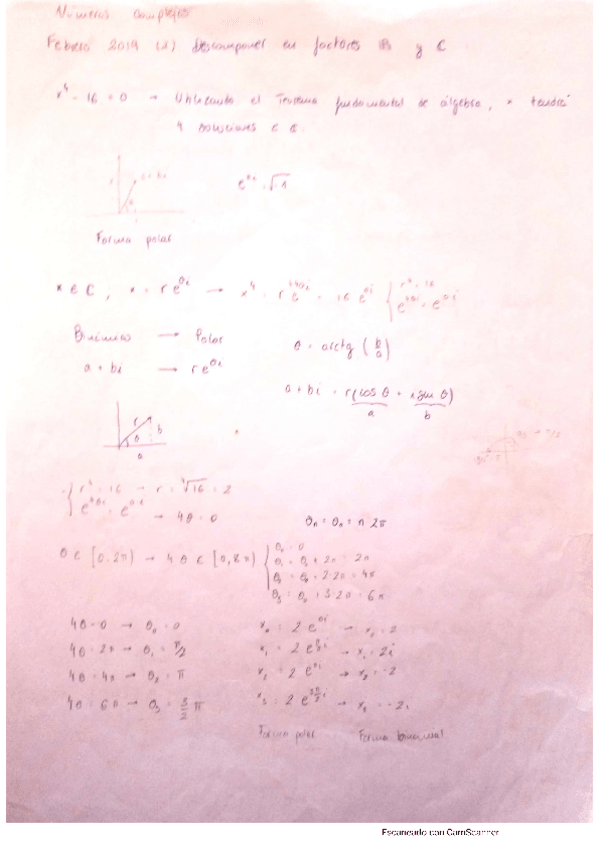 Números complejos
Febrero 2019 (1) Descomponer en factores R y C
x⁴ - 16 = 0 → Utilizando el Teorema fundamental de álgebra, x tendrá
4 soluciones ∈ C.
Forma polar
x ∈ C, x = r e^{θi} → x⁴ = r⁴ e^{4θi} = 16 e^{0i} { r⁴ = 16
e^{4θi} = e^{0i}
Binómica → Polar
θ = arctg (b/a)
a + bi → r e^{θi}
a + bi = r(cos θ + i sen θ)
a b
r b
θ
a
{ r⁴ = 16 → r = ⁴√16 = 2
e^{4θi} = e^{0i} → 4θ = 0
θ ∈ [0, 2π) → 4θ ∈ [0, 8π) { θ₀ = 0
θ₁ = θ₀ + 2π = 2π
θ₂ = θ₀ + 2·2π = 4π
θ₃ = θ₀ + 3·2π = 6π
4θ = 0 → θ₀ = 0 x₀ = 2 e^{0i} → x₀ = 2
4θ = 2π → θ₁ = π/2 x₁ = 2 e^{π/2 i} → x₁ = 2i
4θ = 4π → θ₂ = π x₂ = 2 e^{πi} → x₂ = -2
4θ = 6π → θ₃ = 3/2 π x₃ = 2 e^{3π/2 i} → x₃ = -2i
Forma polar Forma binomial
Escaneado con CamScanner